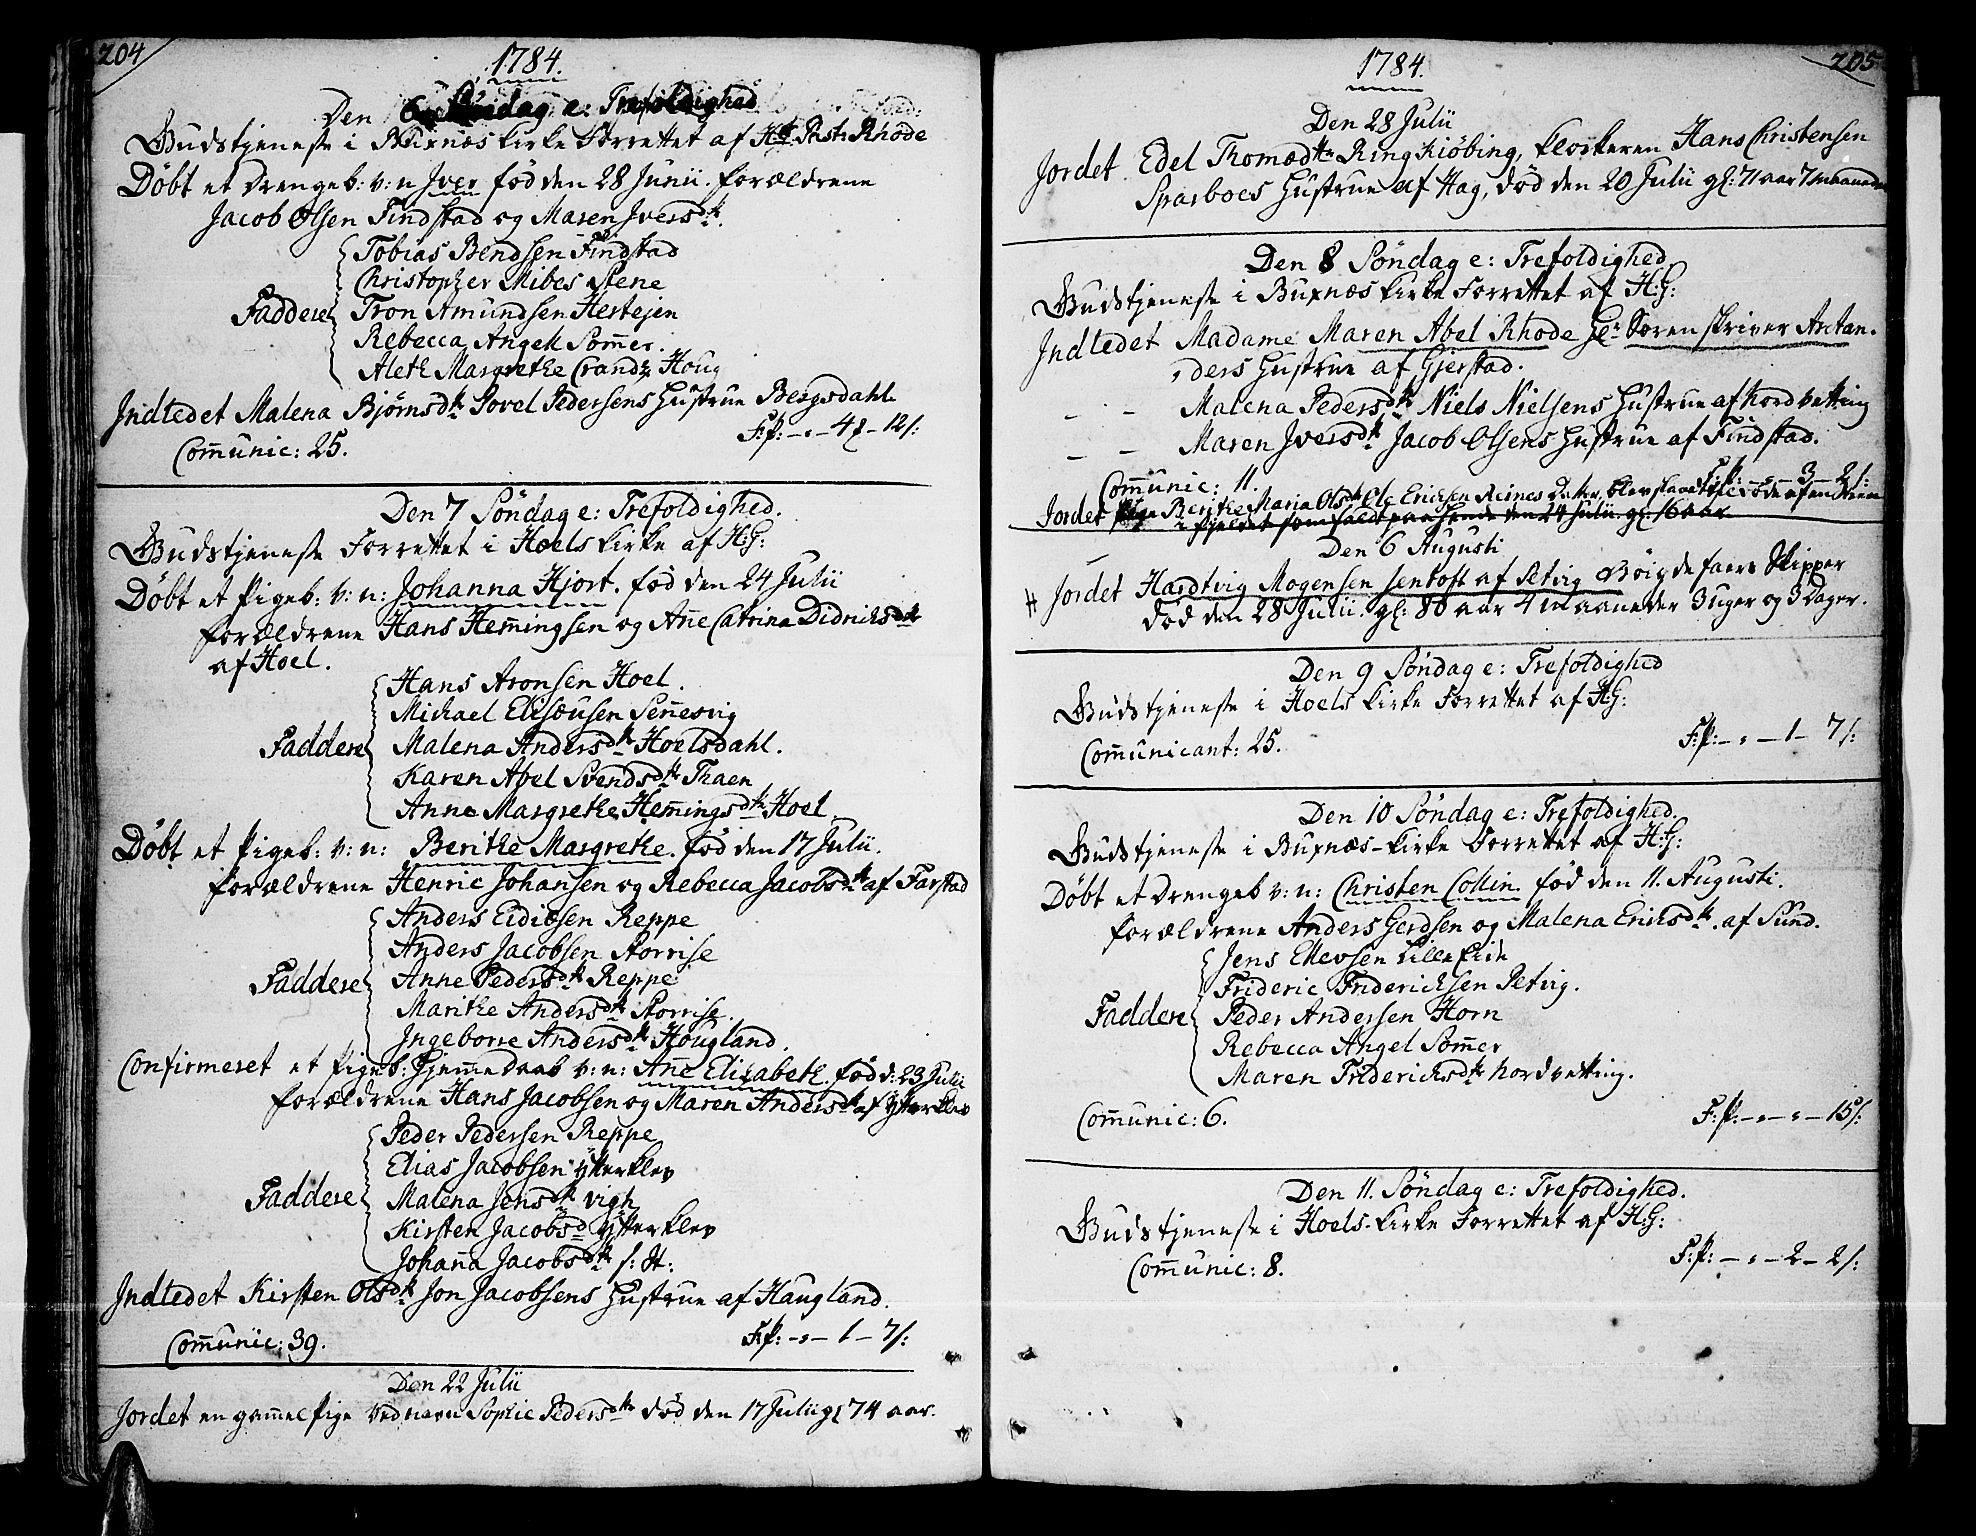 204
1784.
Den 6 Söndag e: Trefoldighed
Gudstjeneste i Buxnæs kirke Forrettet af Hr: Past: Rhode
Döbt et Drengeb: v: n Jver född den 28 Junii. forældrene
Jacob Olsen Findstad og Maren Jversdtr.
Tobias Bendsen Findstad
Christopher Mibes Stene
Faddere Tron Amundsen Hestejen
Rebecca Angell Somer.
Aleth Margrethe Crandtz Houg
Indledet Malena Bjørnsdtr Povel Pedersens Hustrue Bergsdahl.
F:P: - „ - 4 - 12/:
Comunic: 25.
Den 7 Söndag e: Trefoldighed.
Gudstjeneste Forrettet i Hoels kirke af H:G:
Döbt et Pigeb: v: n: Johanna Hjort. fød den 24 Julii
forældrene Hans Hemingsen og Ane Catrina Didrichsdtr
af Hoel.
Hans Aronsen Hoel.
Michael Elisæusen Senesvig
Faddere Malena Andersdtr Hoelsdahl.
Karen Abel Svendsdtr Thaen
Anne Margrethe Hemingsdtr Hoel
Döbt et Pigeb: v: n: Berithe Margrethe. fød den 17 Julii.
forældrene Henric Johansen og Rebecca Jacobsdtr af Farstad
Anders Eidissen Reppe
Anders Jacobsen Storrise
Faddere Anne Pedersdtr Reppe
Marithe Andersdtr Storrise.
Ingeborre Andersdtr Hougland.
Confirmeret et Pigeb: Hjemedaab v: n: Ane Elizabeth. fød d: 23 Julii
forældrene Hans Jacobsen og Maren Andersdtr af Ytterklev
Peder Pedersen Reppe
Elias Jacobsen Ytterklev
Faddere Malena Jensdtr Vigh
Kirsten Jacobsd Ytterklev
Johana Jacobsdtr s: St:
Indledet Kirsten Olsdtr Jon Jacobsens Hustrue af Haugland.
Comunic: 39.
F:P: - „ - 1 - 7/:
Den 22 Julii
Jordet en gamel Pige ved navn Sophie Pedersdtr død den 17 Julii gl 74 aar.
1784.
205
Den 28 Julii
Jordet Edel Thomædtr Ringkiöbing, klockeren Hans Christensen
Sparboes Hustrue af Hag, död den 20 Julii gl: 71 aar 7 maaneder
Den 8 Söndag e: Trefoldighed
Gudstjeneste i Buxnæs kirke Forrettet af H:G:
Indledet Madame Maren Abel Rhode Hr Sorenskriver Arctan-
„ders Hustrue af Gjerstad.
- - Malena Pedersdtr Niels Nielsens Hustrue af Nordvetting
- - Maren Jversdtr Jacob Olsens Hustrue af Findstad.
Comunic: 11.
F:P: - 3 - 2/:
Jordet Pige Berithe Maria Olsdtr Ole Ericksen Reines Datter, blev slaaet til döde af en Steen
i fjeldet som faldt paa hende den 24 Julii. gl: 16 aar.
Den 6 Augusti
# Jordet Hardtvig Mogensen Sentoft af Petvig Böigdefaers Skipper
död den 28 Julii. gl: 80 aar 4 maaneder 3 uger og 3 Dager.
Den 9 Söndag e: Trefoldighed
Gudstjeneste i Hoels kirke Forrettet af H:G:
F:P: - „ - 1 - 7/:
Comunicant: 25.
Den 10 Söndag e: Trefoldighed.
Gudstjeneste i Buxnæs-kirke Forrettet af H:G:
Döbt et Drengeb v: n: Christen Collin. fød den 11. Augusti.
forældrene Anders Gerdsen og Malena Ericksdtr. af Sund.
Jens Ellevsen Lille Eide
Frideric Fridericksen Petvig.
Faddere Peder Andersen Horn
Rebecca Angel Somer
Maren Fridericksdtr Nordvetting.
Comunic: 6.
F:P: - „ - „ - 15/:
Den 11. Söndag e: Trefoldighed.
Gudstjeneste i Hoels-kirke Forrettet af H:G:
F:P: - „ - 2 - 2/:
Comunic: 8.